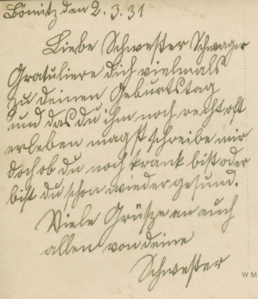 Bömitz den 2.3.31
Liebe Schwester Schwager
Gratuliere dich vielmals
zu deinen Geburtstag
und das du ihn noch recht oft
erleben magst, schreibe mir
doch ob du noch krank bist oder
bist du schon wieder gesund.
Viele Grüsze an euch
allen von deine
Schwester
W M